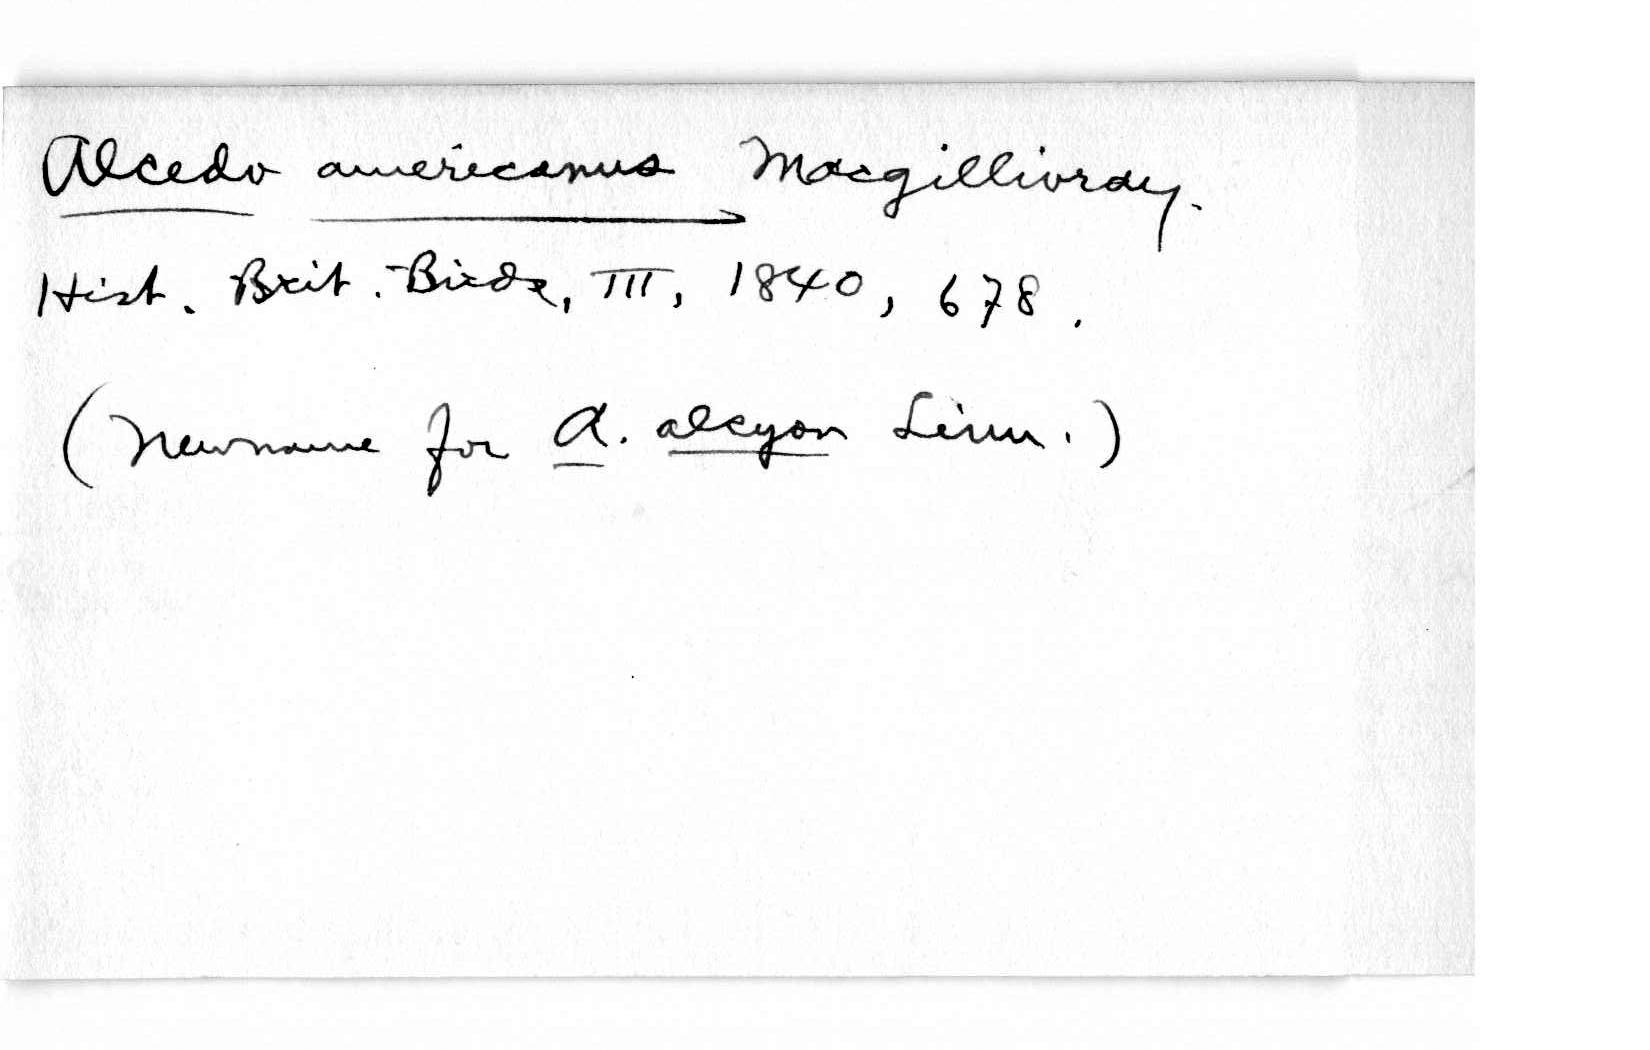 Alcedo americanus Macgillivray.
Hist. Brit. Birds, III, 1840, 678.
(New name for A. alcyon Linn.)